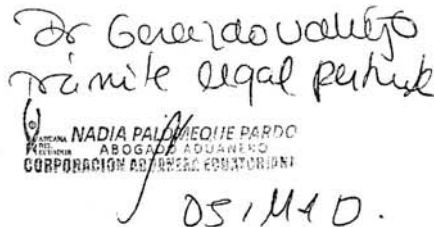 Dr Gerardo Vallejo
Trámite legal
ADUANA DEL ECUADOR
NADIA PALOMEQUE PARDO
ABOGADO ADUANERO
CORPORACION ADUANERA ECUATORIANA